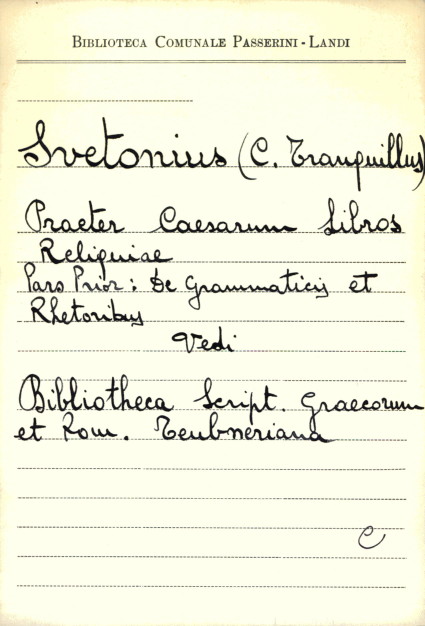 BIBLIOTECA COMUNALE PASSERINI - LANDI
Svetonius (C. Tranquillus)
Praeter Caesarum Libros
Reliquiae
Pars Prior: De Grammaticis et
Rhetoribus
Vedi
Bibliotheca Script. Graecorum
et Rom. Teubneriana
C